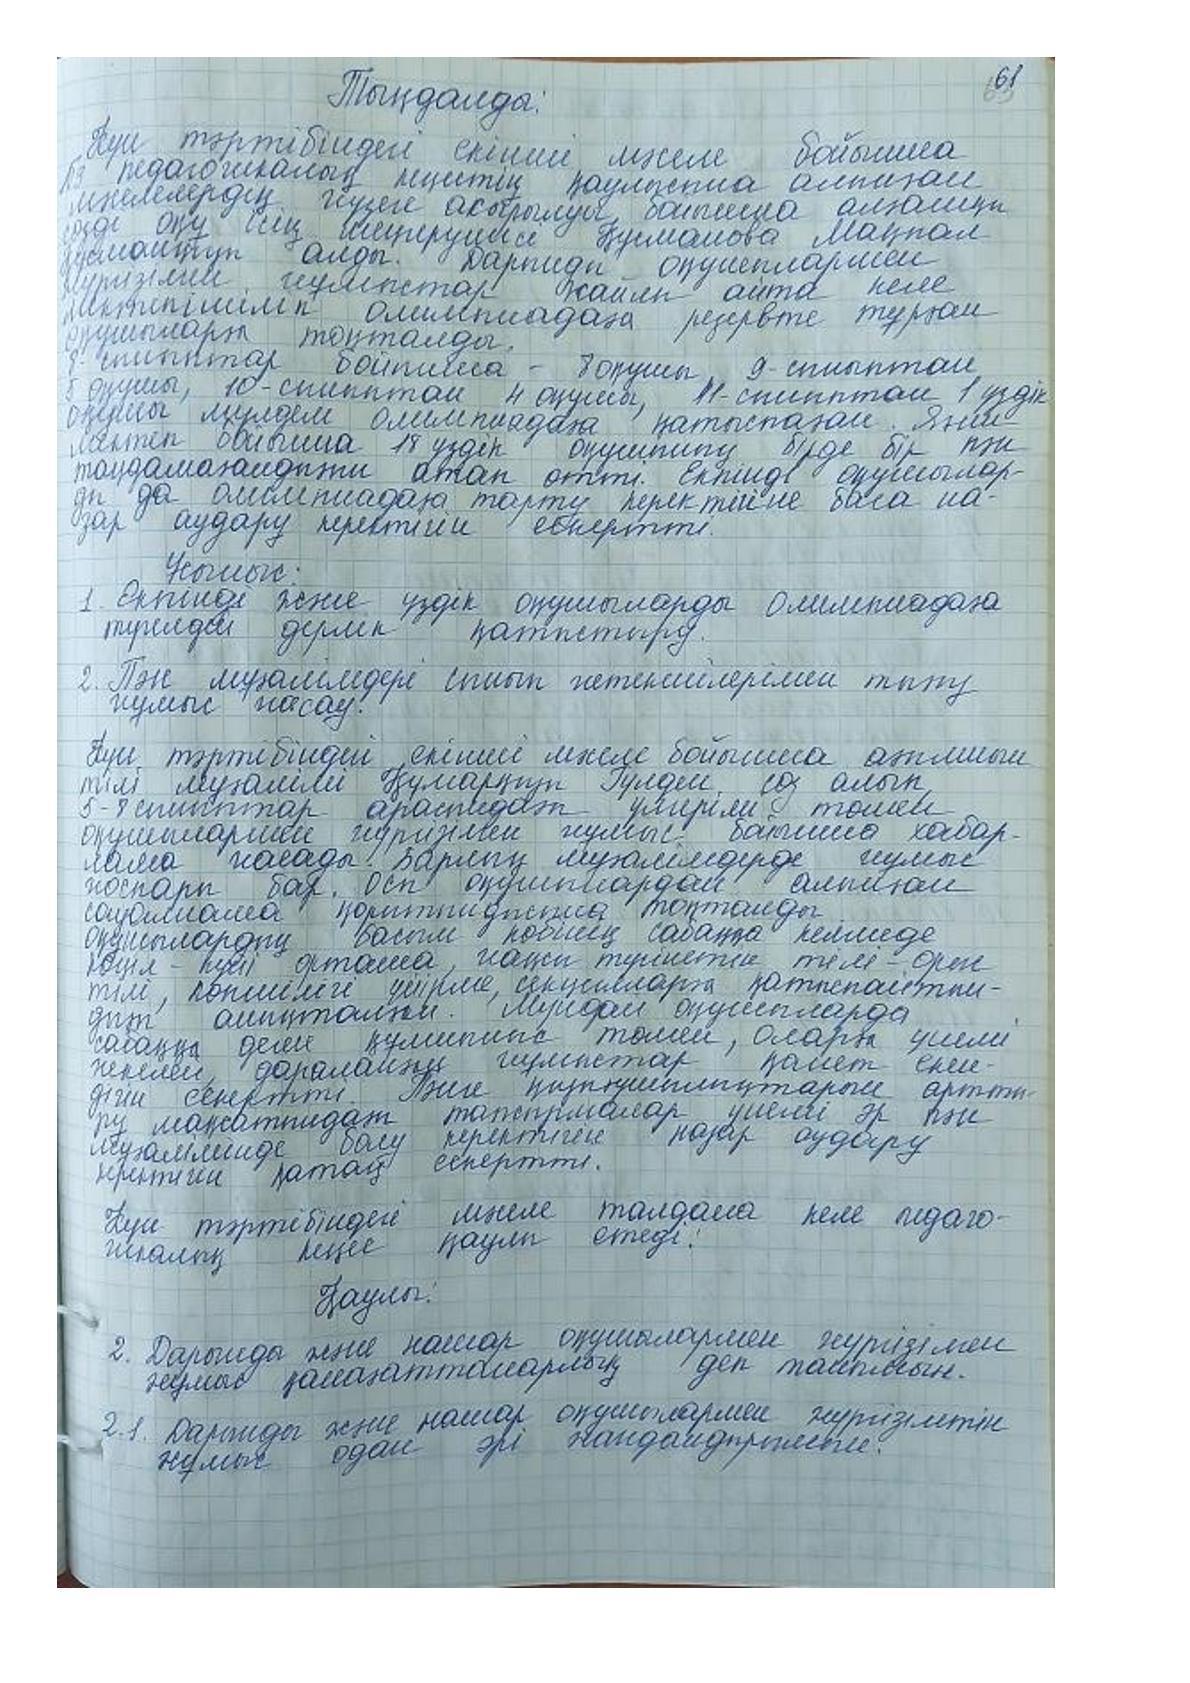 61
Тыңдалды:
Күн тәртібіндегі екінші мәселе бойынша
№3 педагогикалық кеңестің қаулысына алынған
мәселелердің жүзеге асырылуы бойынша алғашқы
сөзді оқу ісің меңгерушісі Құсманова Мақпал
алды. Дарынды оқушылармен
жүргізілген жұмыстар жайлы айта келе
олимпиадаға резервте тұрған
оқушыларға тоқталды.
8-сыныптар бойынша - 8 оқушы, 9-сыныптан
5 оқушы, 10-сыныптан 4 оқушы, 11-сыныптан 1 үздік
оқушы мүлдем олимпиадаға қатыспаған. Яғни
мектеп бойынша 18 үздік оқушының бірде бір пән
таңдамағандығын атап өтті. Екпінді оқушылар-
ды да олимпиадаға тарту керектігіне баса на-
зар аудару керектігін ескертті.
Ұсыныс:
1. Екпінді және үздік оқушыларды олимпиадаға
түгелдей дерлік қатыстыру.
2. Пән мұғалімдері сынып жетекшілерімен тығыз
жұмыс жасау.
Күн тәртібіндегі екінші мәселе бойынша ағылшын
тілі мұғалімі Құмарқұл Гүлден сөз алып,
5-8 сыныптар арасындағы үлгерімі төмен
оқушылармен жүргізілген жұмыс бойынша хабар-
лама жасады. Барлық мұғалімдерде жұмыс
жоспары бар. Осы оқушылардан алынған
сауалнама қорытындысына тоқталды.
Оқушылардың басым көбінің сабаққа келмеде
көңіл-күйі орташа, жақсы түсінетін тілі - орыс
тілі, көпшілігі үйірме, секцияларға қатыспайтын-
дығы анықталған. Мұндай оқушыларда
сабаққа деген құлшыныс төмен, оларға үнемі
жекелей, даралаңқы жұмыстар қажет екен-
дігін ескертті. Және қызығушылықтарын арттыр-
ру мақсатындағы тапсырмалар үнемі әр пән
мұғалімінде болу керектігіне назар аудару
керектігін қатаң ескертті.
Күн тәртібіндегі мәселе талдана келе педаго-
гикалық кеңес қаулы етеді:
Қаулы:
2. Дарынды және нашар оқушылармен жүргізілген
жұмыс қанағаттанарлық деп танылсын.
2.1. Дарынды және нашар оқушылармен жүргізілетін
жұмыс одан әрі жандандырылсын.